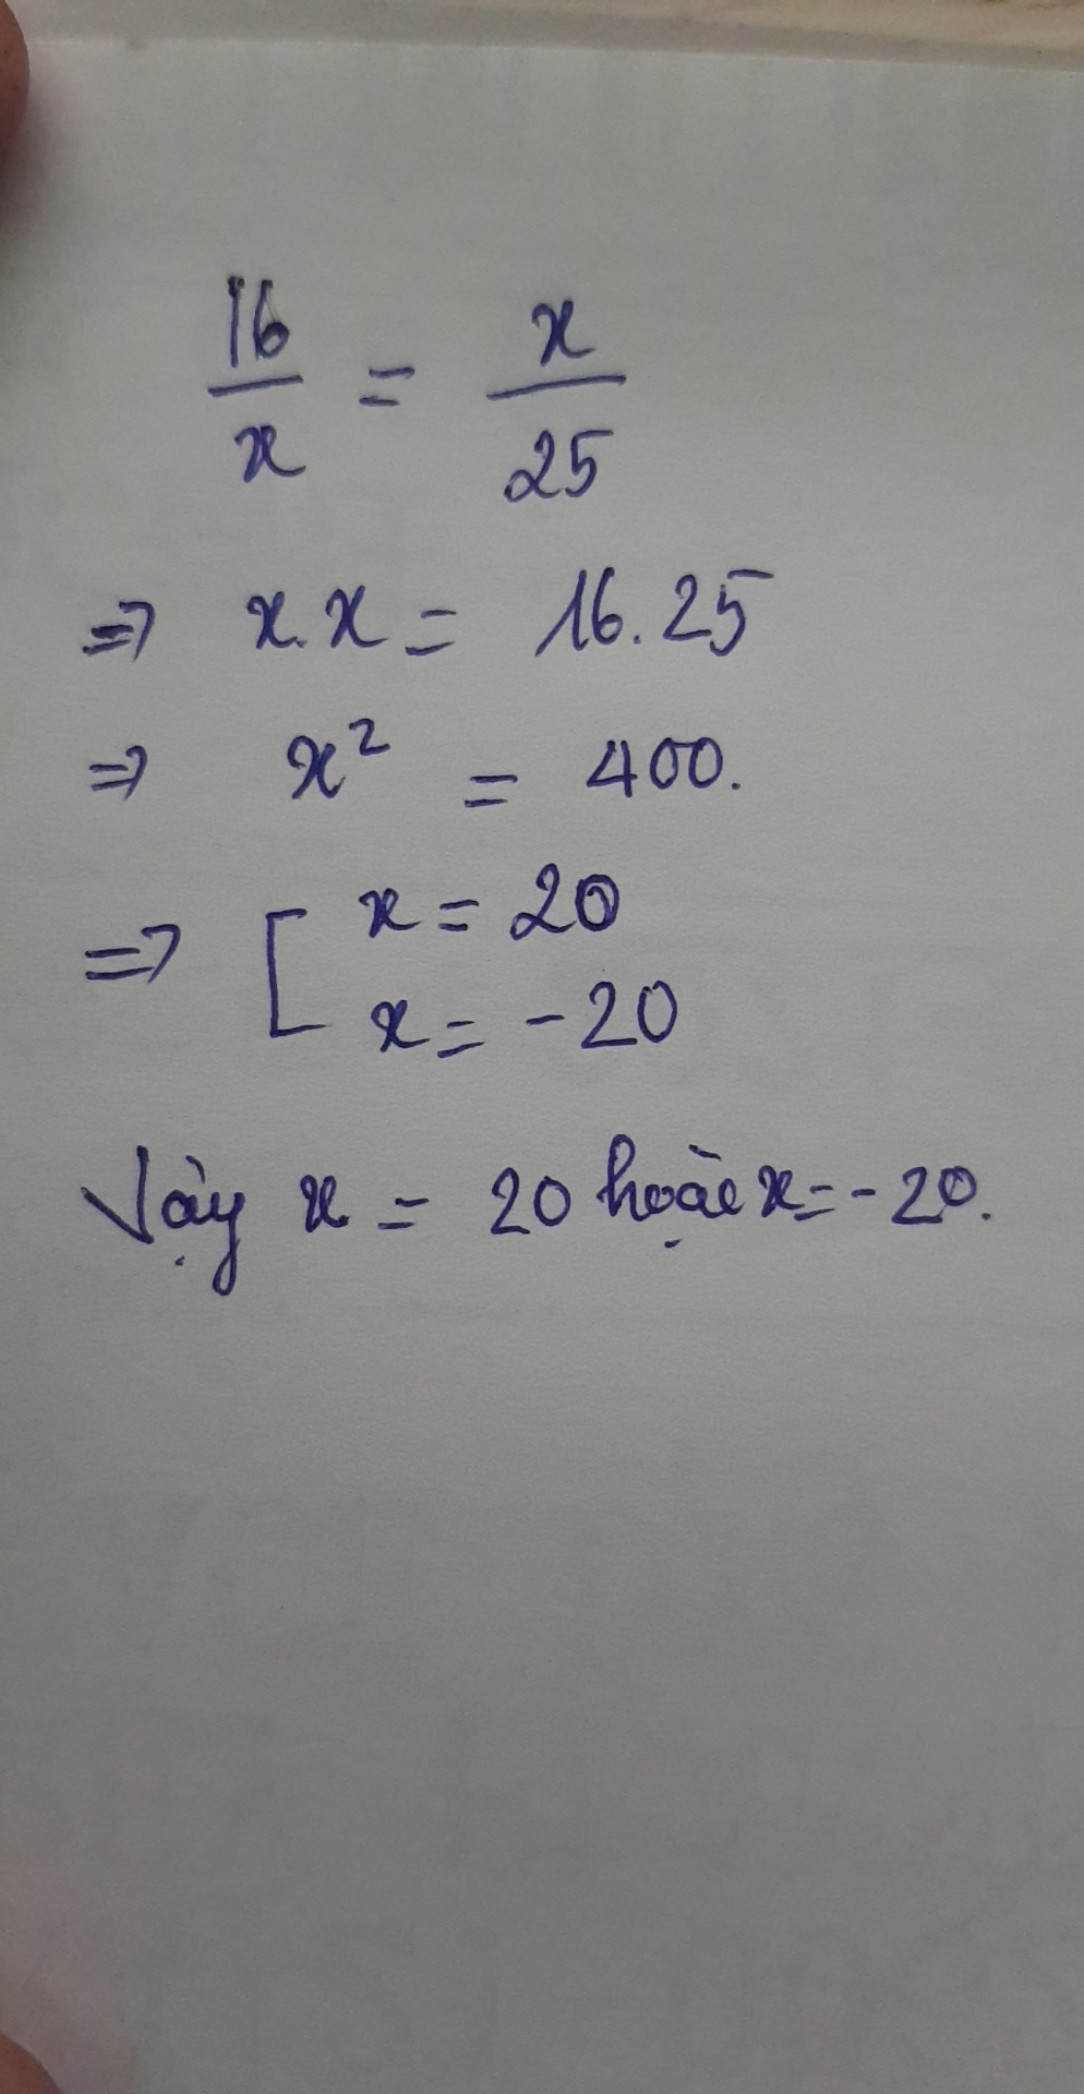 16/x = x/25
=> x.x = 16.25
=> x² = 400.
=> [ x = 20
x = -20
Vậy x = 20 hoặc x = -20.